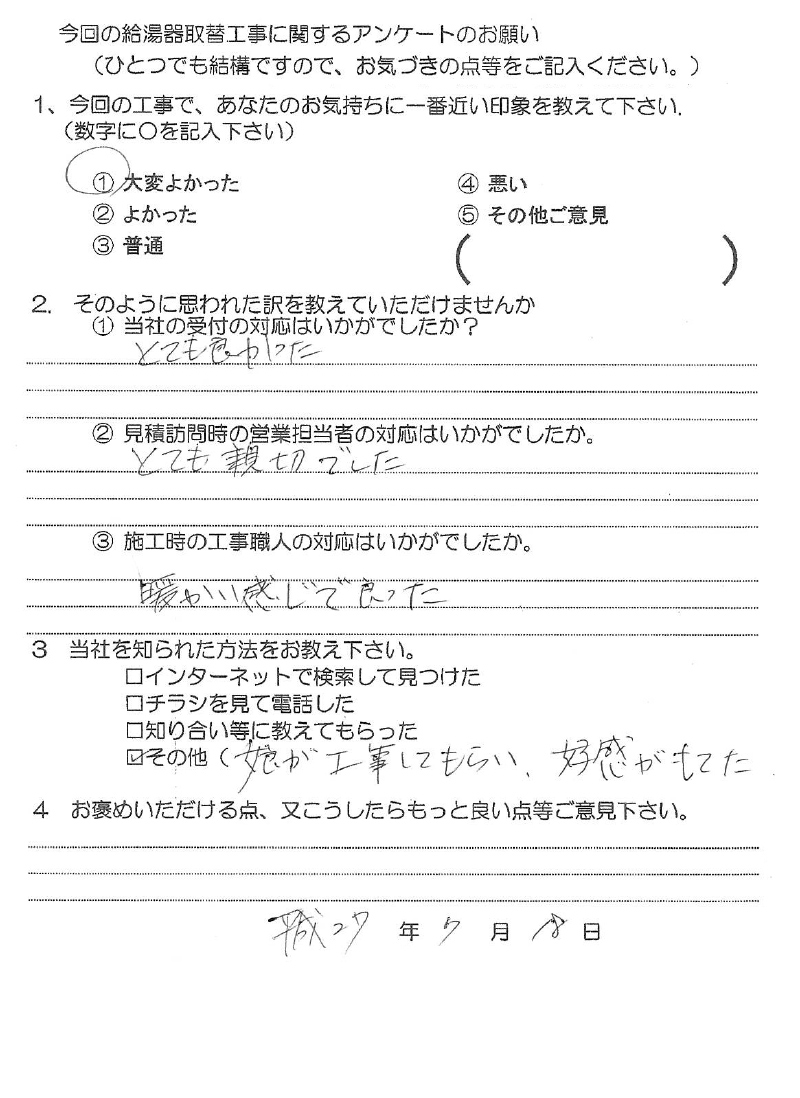 今回の給湯器取替工事に関するアンケートのお願い
（ひとつでも結構ですので、お気づきの点等をご記入ください。）
1、今回の工事で、あなたのお気持ちに一番近い印象を教えて下さい.
（数字に〇を記入下さい）
① 大変よかった
② よかった
③ 普通
④ 悪い
⑤ その他ご意見
（ ）
2. そのように思われた訳を教えていただけませんか
① 当社の受付の対応はいかがでしたか？
とても良かった
② 見積訪問時の営業担当者の対応はいかがでしたか。
とても親切でした
③ 施工時の工事職人の対応はいかがでしたか。
暖かい感じで良った
3 当社を知られた方法をお教え下さい。
□インターネットで検索して見つけた
□チラシを見て電話した
□知り合い等に教えてもらった
☑その他（娘が工事してもらい、好感がもてた
4 お褒めいただける点、又こうしたらもっと良い点等ご意見下さい。
平成27年 月 日